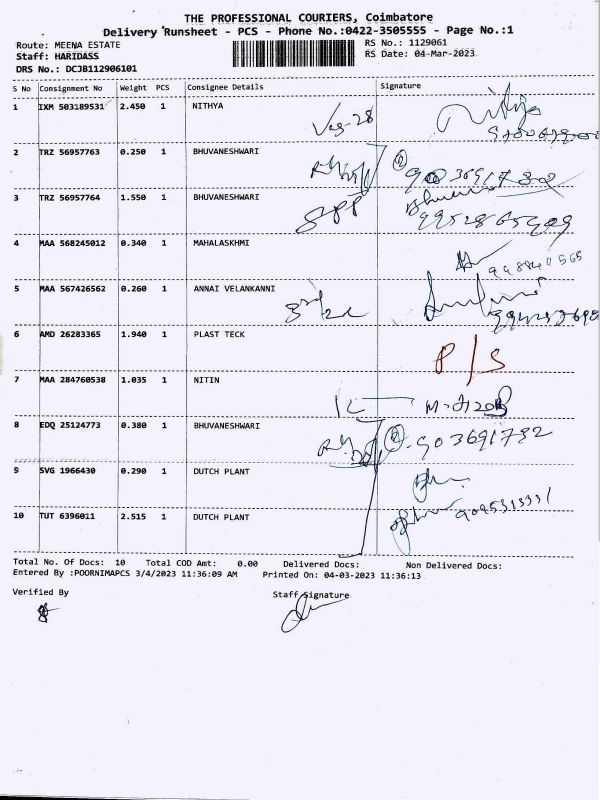 THE PROFESSIONAL COURIERS, Coimbatore
Delivery Runsheet - PCS - Phone No.:0422-3505555 - Page No.:1
Route: MEENA ESTATE
Staff: HARIDASS
DRS No.: DCJB112906101
RS No.: 1129061
RS Date: 04-Mar-2023
S No Consignment No Weight PCS Consignee Details Signature
1 IXM 503189531 2.450 1 NITHYA
2 TRZ 56957763 0.250 1 BHUVANESHWARI
3 TRZ 56957764 1.550 1 BHUVANESHWARI
4 MAA 568245012 0.340 1 MAHALASKHMI
5 MAA 567426562 0.260 1 ANNAI VELANKANNI
6 AMD 26283365 1.940 1 PLAST TECK P/S
7 MAA 284760538 1.035 1 NITIN
8 EDQ 25124773 0.380 1 BHUVANESHWARI 903691792
9 SVG 1966430 0.290 1 DUTCH PLANT
10 TUT 6396011 2.515 1 DUTCH PLANT 9095313331
Total No. Of Docs: 10 Total COD Amt: 0.00 Delivered Docs: Non Delivered Docs:
Entered By :POORNIMAPCS 3/4/2023 11:36:09 AM Printed On: 04-03-2023 11:36:13
Verified By Staff Signature